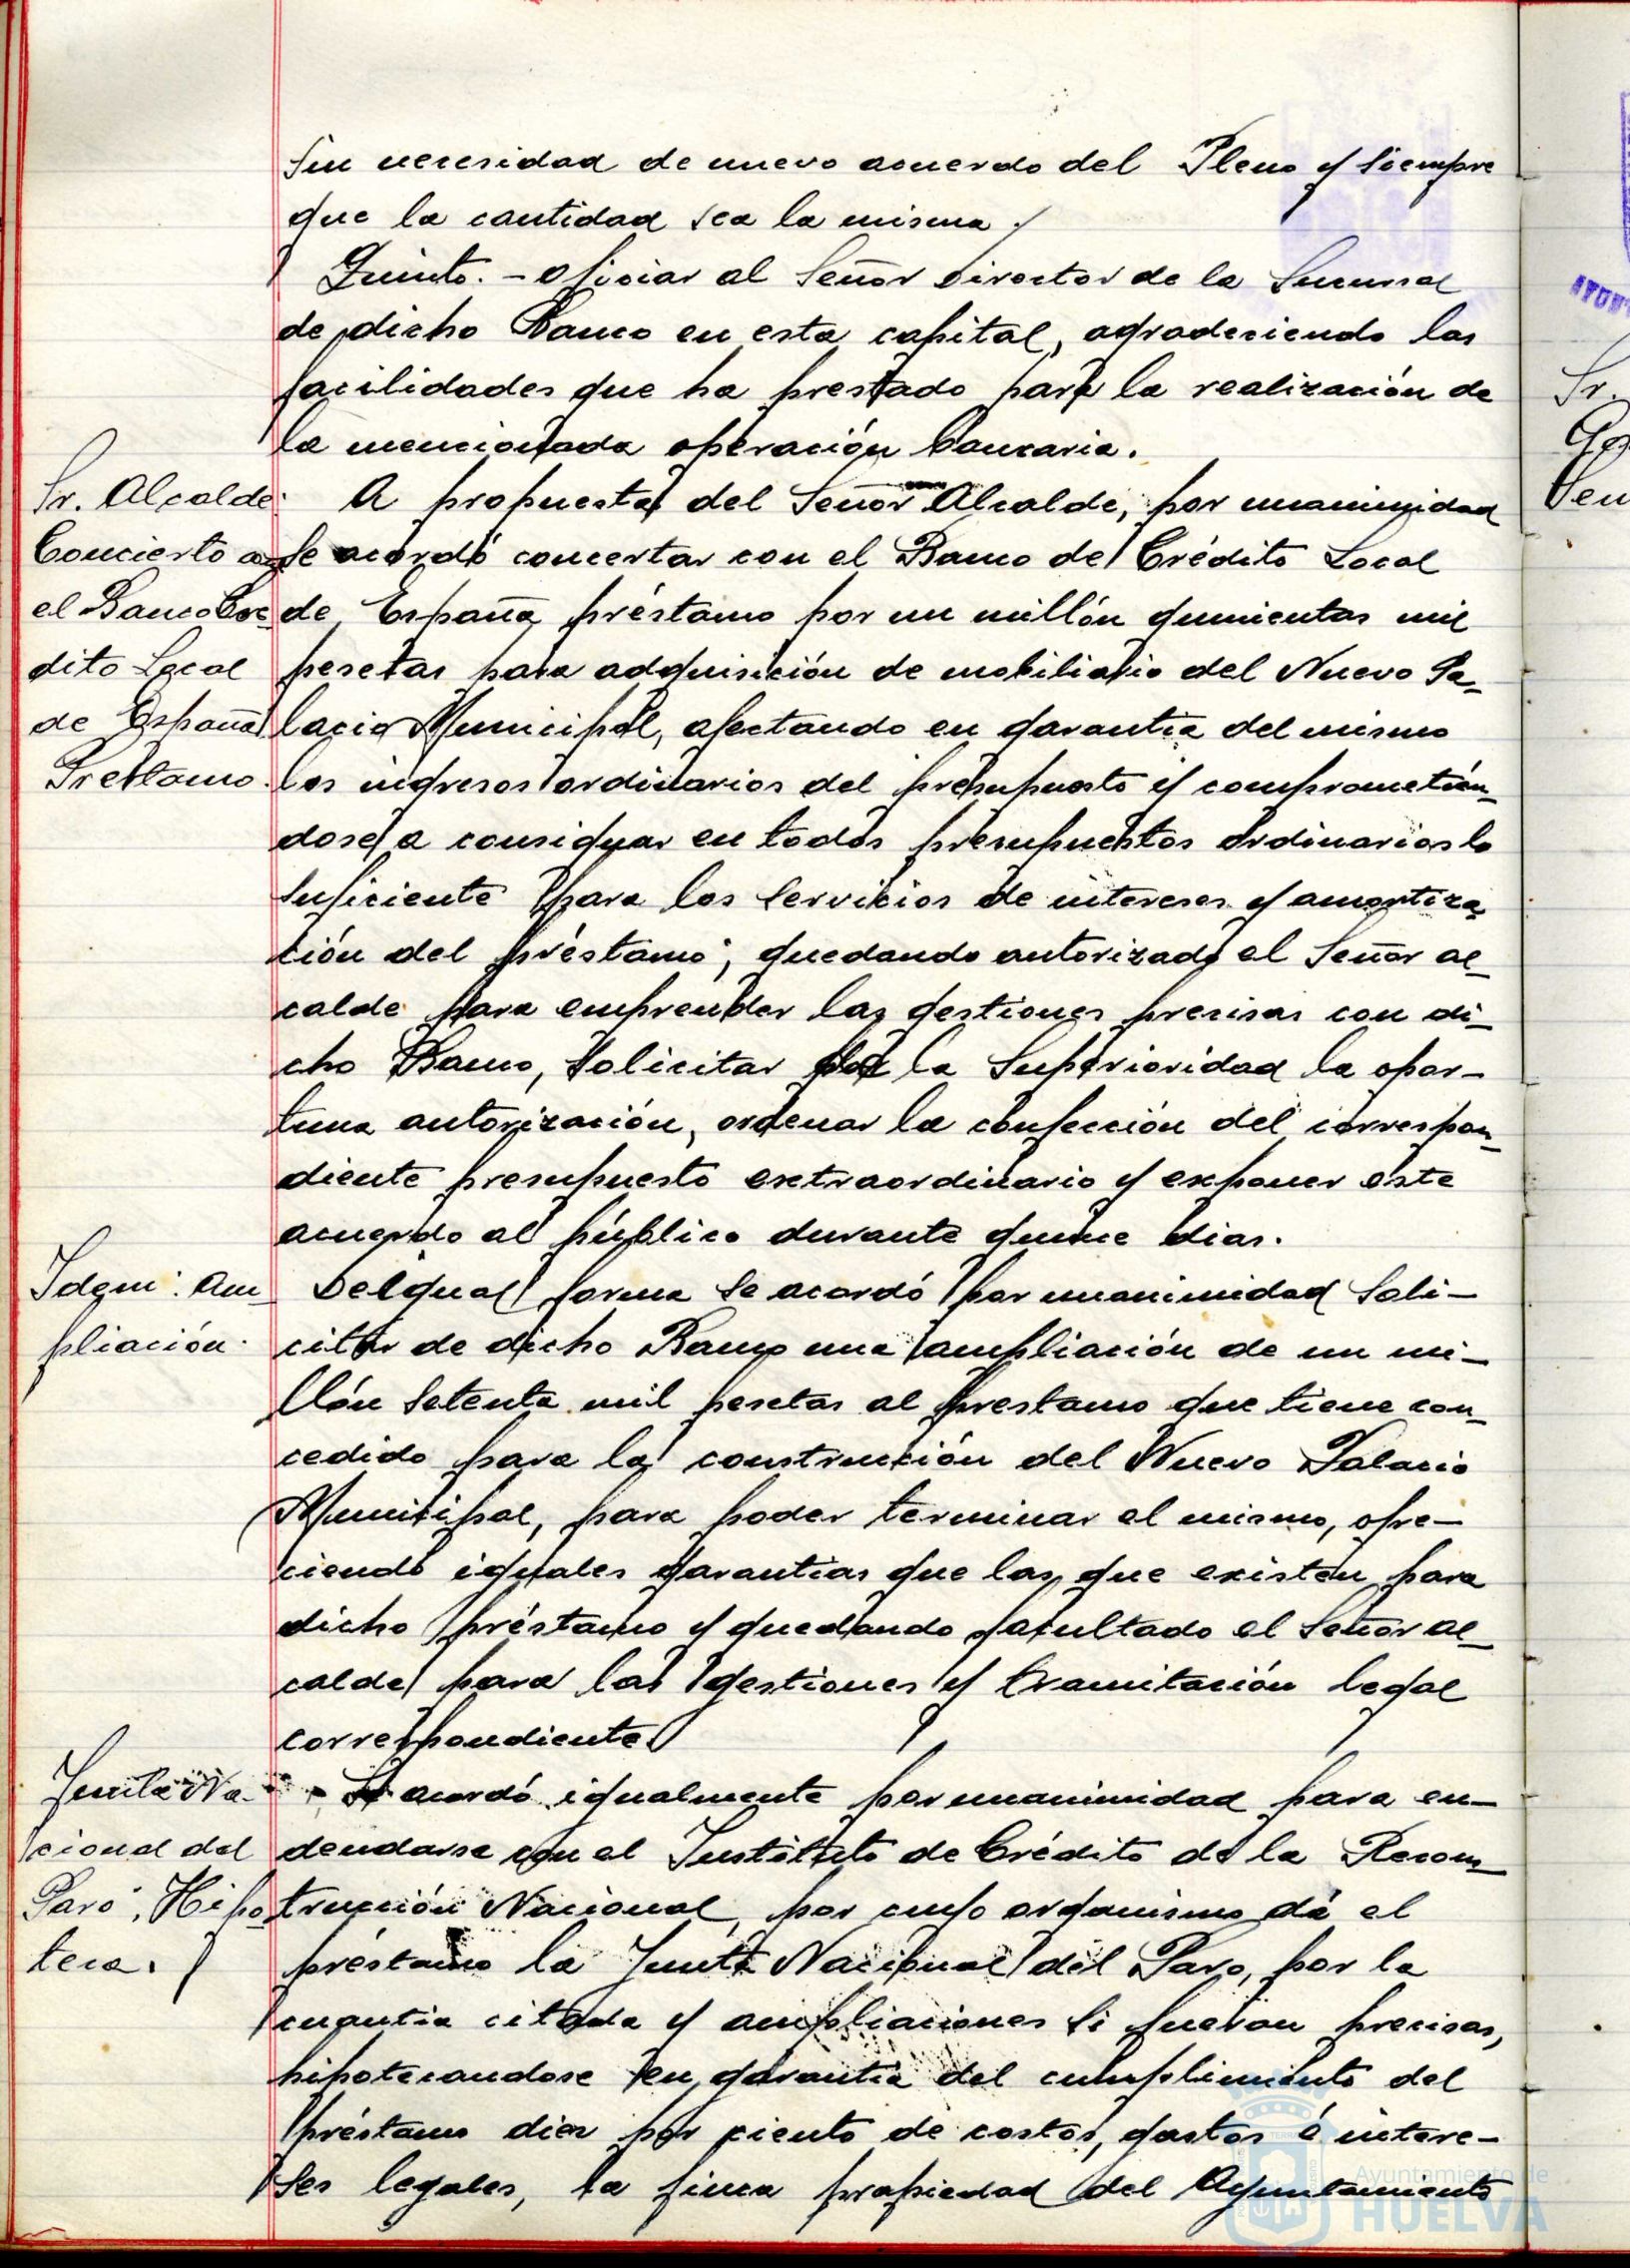 sin necesidad de nuevo acuerdo del Pleno y siempre
que la cantidad sea la misma.
Quinto.- Oficiar al Señor Director de la Sucursal
de dicho Banco en esta capital, agradeciendo las
facilidades que ha prestado para la realización de
la mencionada operación bancaria.
Sr. Alcalde
Concierto con
el Banco Cré-
dito Local
de España
Prestamo.
A propuesta del Señor Alcalde, por unanimidad
se acordó concertar con el Banco de Crédito Local
de España préstamo por un millón quinientas mil
pesetas para adquisición de mobiliario del Nuevo Pa-
lacio Municipal, afectando en garantia del mismo
los ingresos ordinarios del presupuesto y comprometién-
dose a consignar en todos presupuestos ordinarios lo
suficiente para los servicios de intereses y amortiza-
ción del préstamo; quedando autorizado el Señor Al-
calde para emprender las gestiones precisas con di-
cho Banco, solicitar de la Superioridad la opor-
tuna autorización, ordenar la confección del correspon-
diente presupuesto extraordinario y exponer este
acuerdo al público durante quince dias.
Idem: Am-
pliación.
De igual forma se acordó por unanimidad soli-
citar de dicho Banco una ampliación de un mi-
llón setenta mil pesetas al prestamo que tiene con-
cedido para la construcción del Nuevo Palacio
Municipal, para poder terminar el mismo, ofre-
ciendo iguales garantias que las que existen para
dicho préstamo y quedando facultado el Señor Al-
calde para las gestiones y tramitación legal
correspondiente.
Junta Na-
cional del
Paro, Hipo-
teca.
Se acordó igualmente por unanimidad para en-
deudarse con el Instituto de Crédito de la Recons-
trucción Nacional, por cuyo organismo dá el
préstamo la Junta Nacional del Paro, por la
cuantia citada y ampliaciones si fueran precisas,
hipotecandose en garantia del cumplimiento del
préstamo diez por ciento de costas, gastos é intere-
ses legales, la finca propiedad del Ayuntamiento
Sr.
Ayuntamiento de
HUELVA